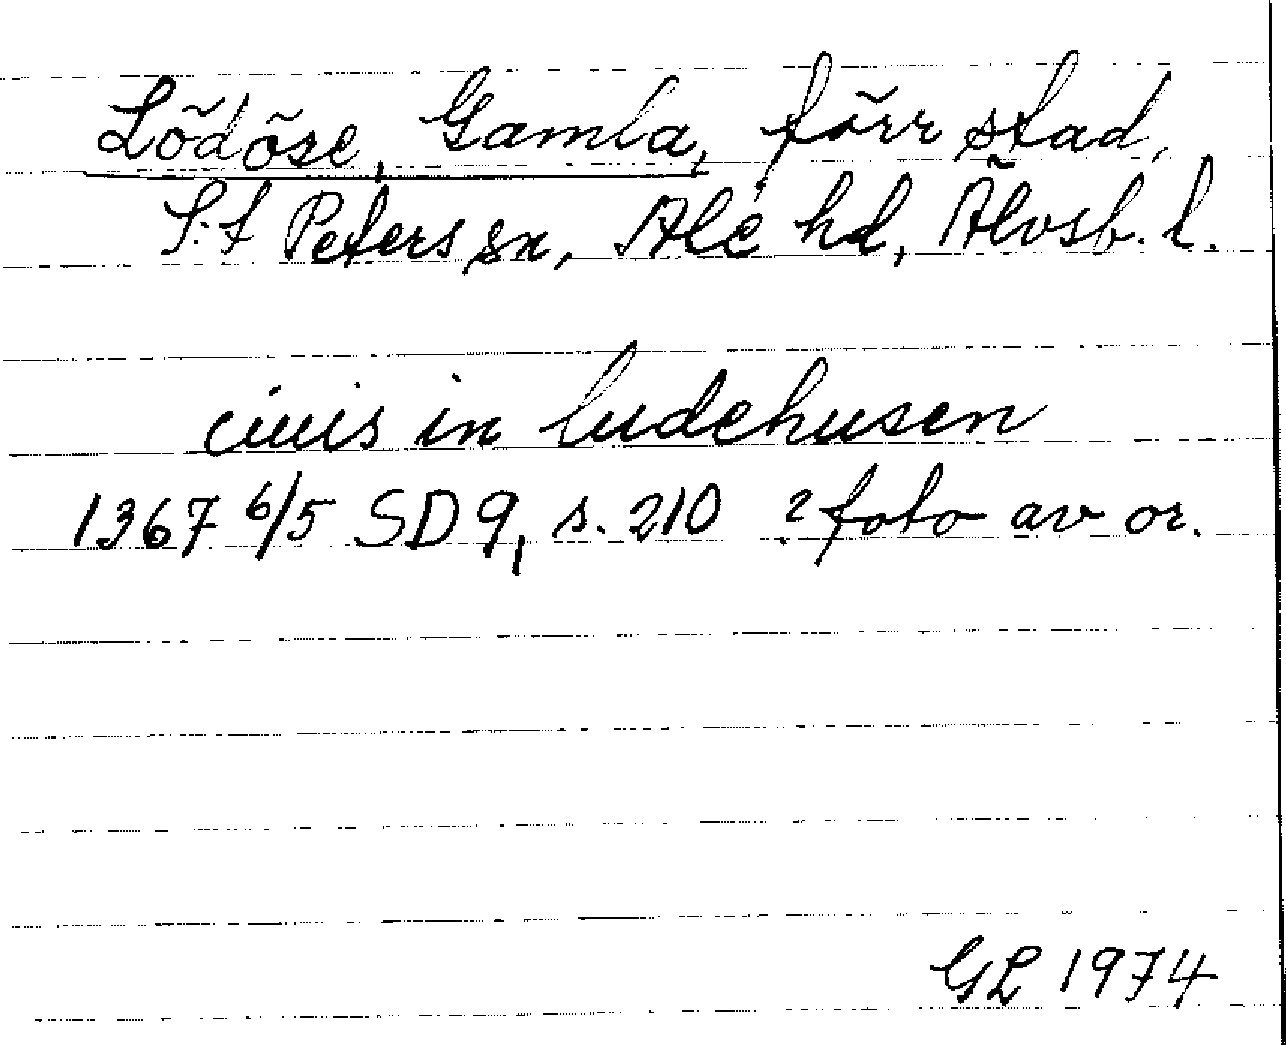 Lödöse, Gamla, förr stad,
S:t Peters sn, Ale hd, Älvsb. l.
ciuis in ludehusen
1367 6/5 SD 9, s. 210 ? foto av or.
GL 1974